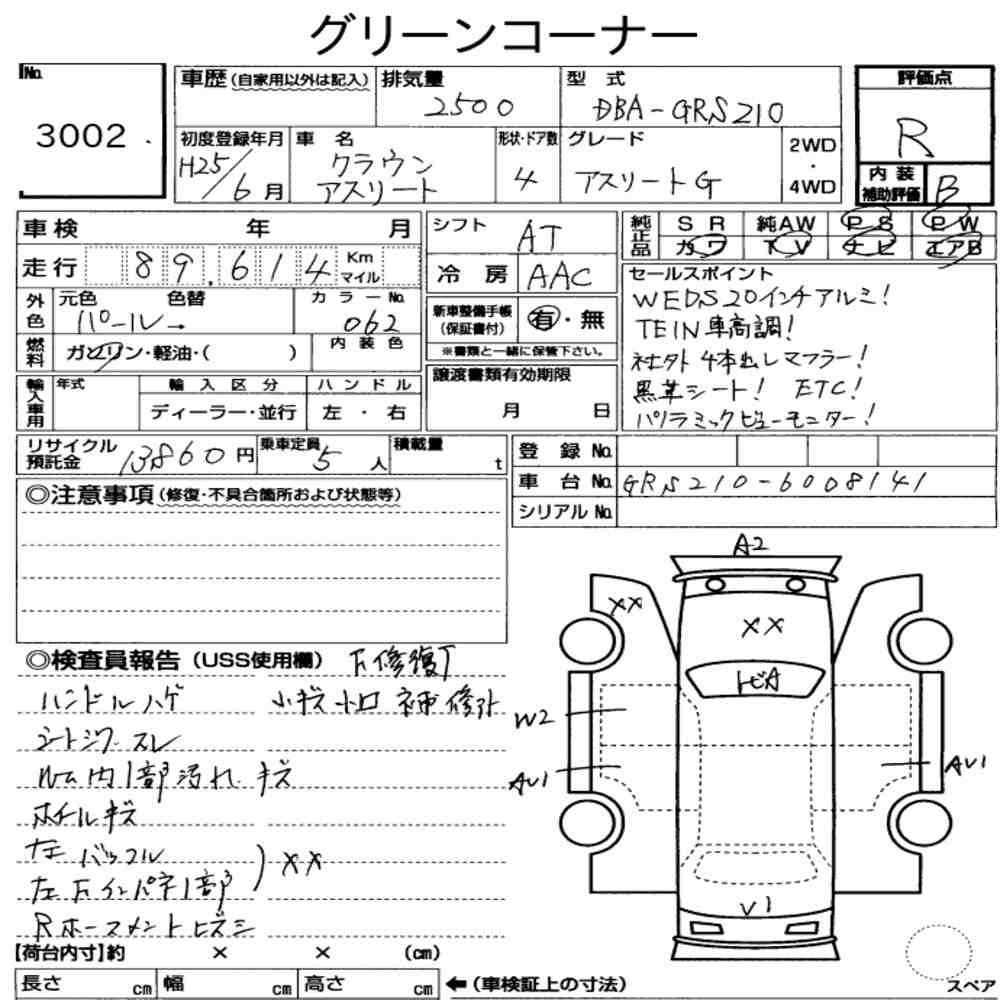 グリーンコーナー
No.
3002
車歴(自家用以外は記入) 排気量 型 式 評価点
2500 DBA-GRS210
R
初度登録年月 車 名 形状・ドア数 グレード 2WD
・
4WD
H25/6月 クラウン
アスリート 4 アスリートG
内 装
補助評価 B
車検 年 月
走行 89,614 Km
マイル
外色 元色 色替 カラーNo.
パール→ 062
燃料 ガソリン・軽油・( ) 内装色
輸入車用 年式 輸入区分 ハンドル
ディーラー・並行 左・右
シフト AT
冷房 AAC
新車整備手帳
(保証書付) 有・無
※書類と一緒に保管下さい。
譲渡書類有効期限
月 日
純正品 SR 純AW PS PW
カワ TV ナビ エアB
セールスポイント
WEDS20インチアルミ!
TEIN車高調!
社外4本出しマフラー!
黒革シート! ETC!
パノラミックビューモニター!
リサイクル
預託金 13860円 乗車定員 5人 積載量 t
登録No.
車台No. GRS210-6008141
シリアルNo.
◎注意事項(修復・不具合箇所および状態等)
◎検査員報告(USS使用欄) 下修復
ハンドルハゲ 小キズ
シートシワ スレ
ルーム内1部汚れ キズ
ホイールキズ
左 バッフル
左Fインパネ1部 ) XX
Rホースメントヒズミ
A2
XX
XX
トビA
W2
AV1
AV1
V1
スペア
【荷台内寸】約 × × (cm)
長さ cm 幅 cm 高さ cm ←(車検証上の寸法)